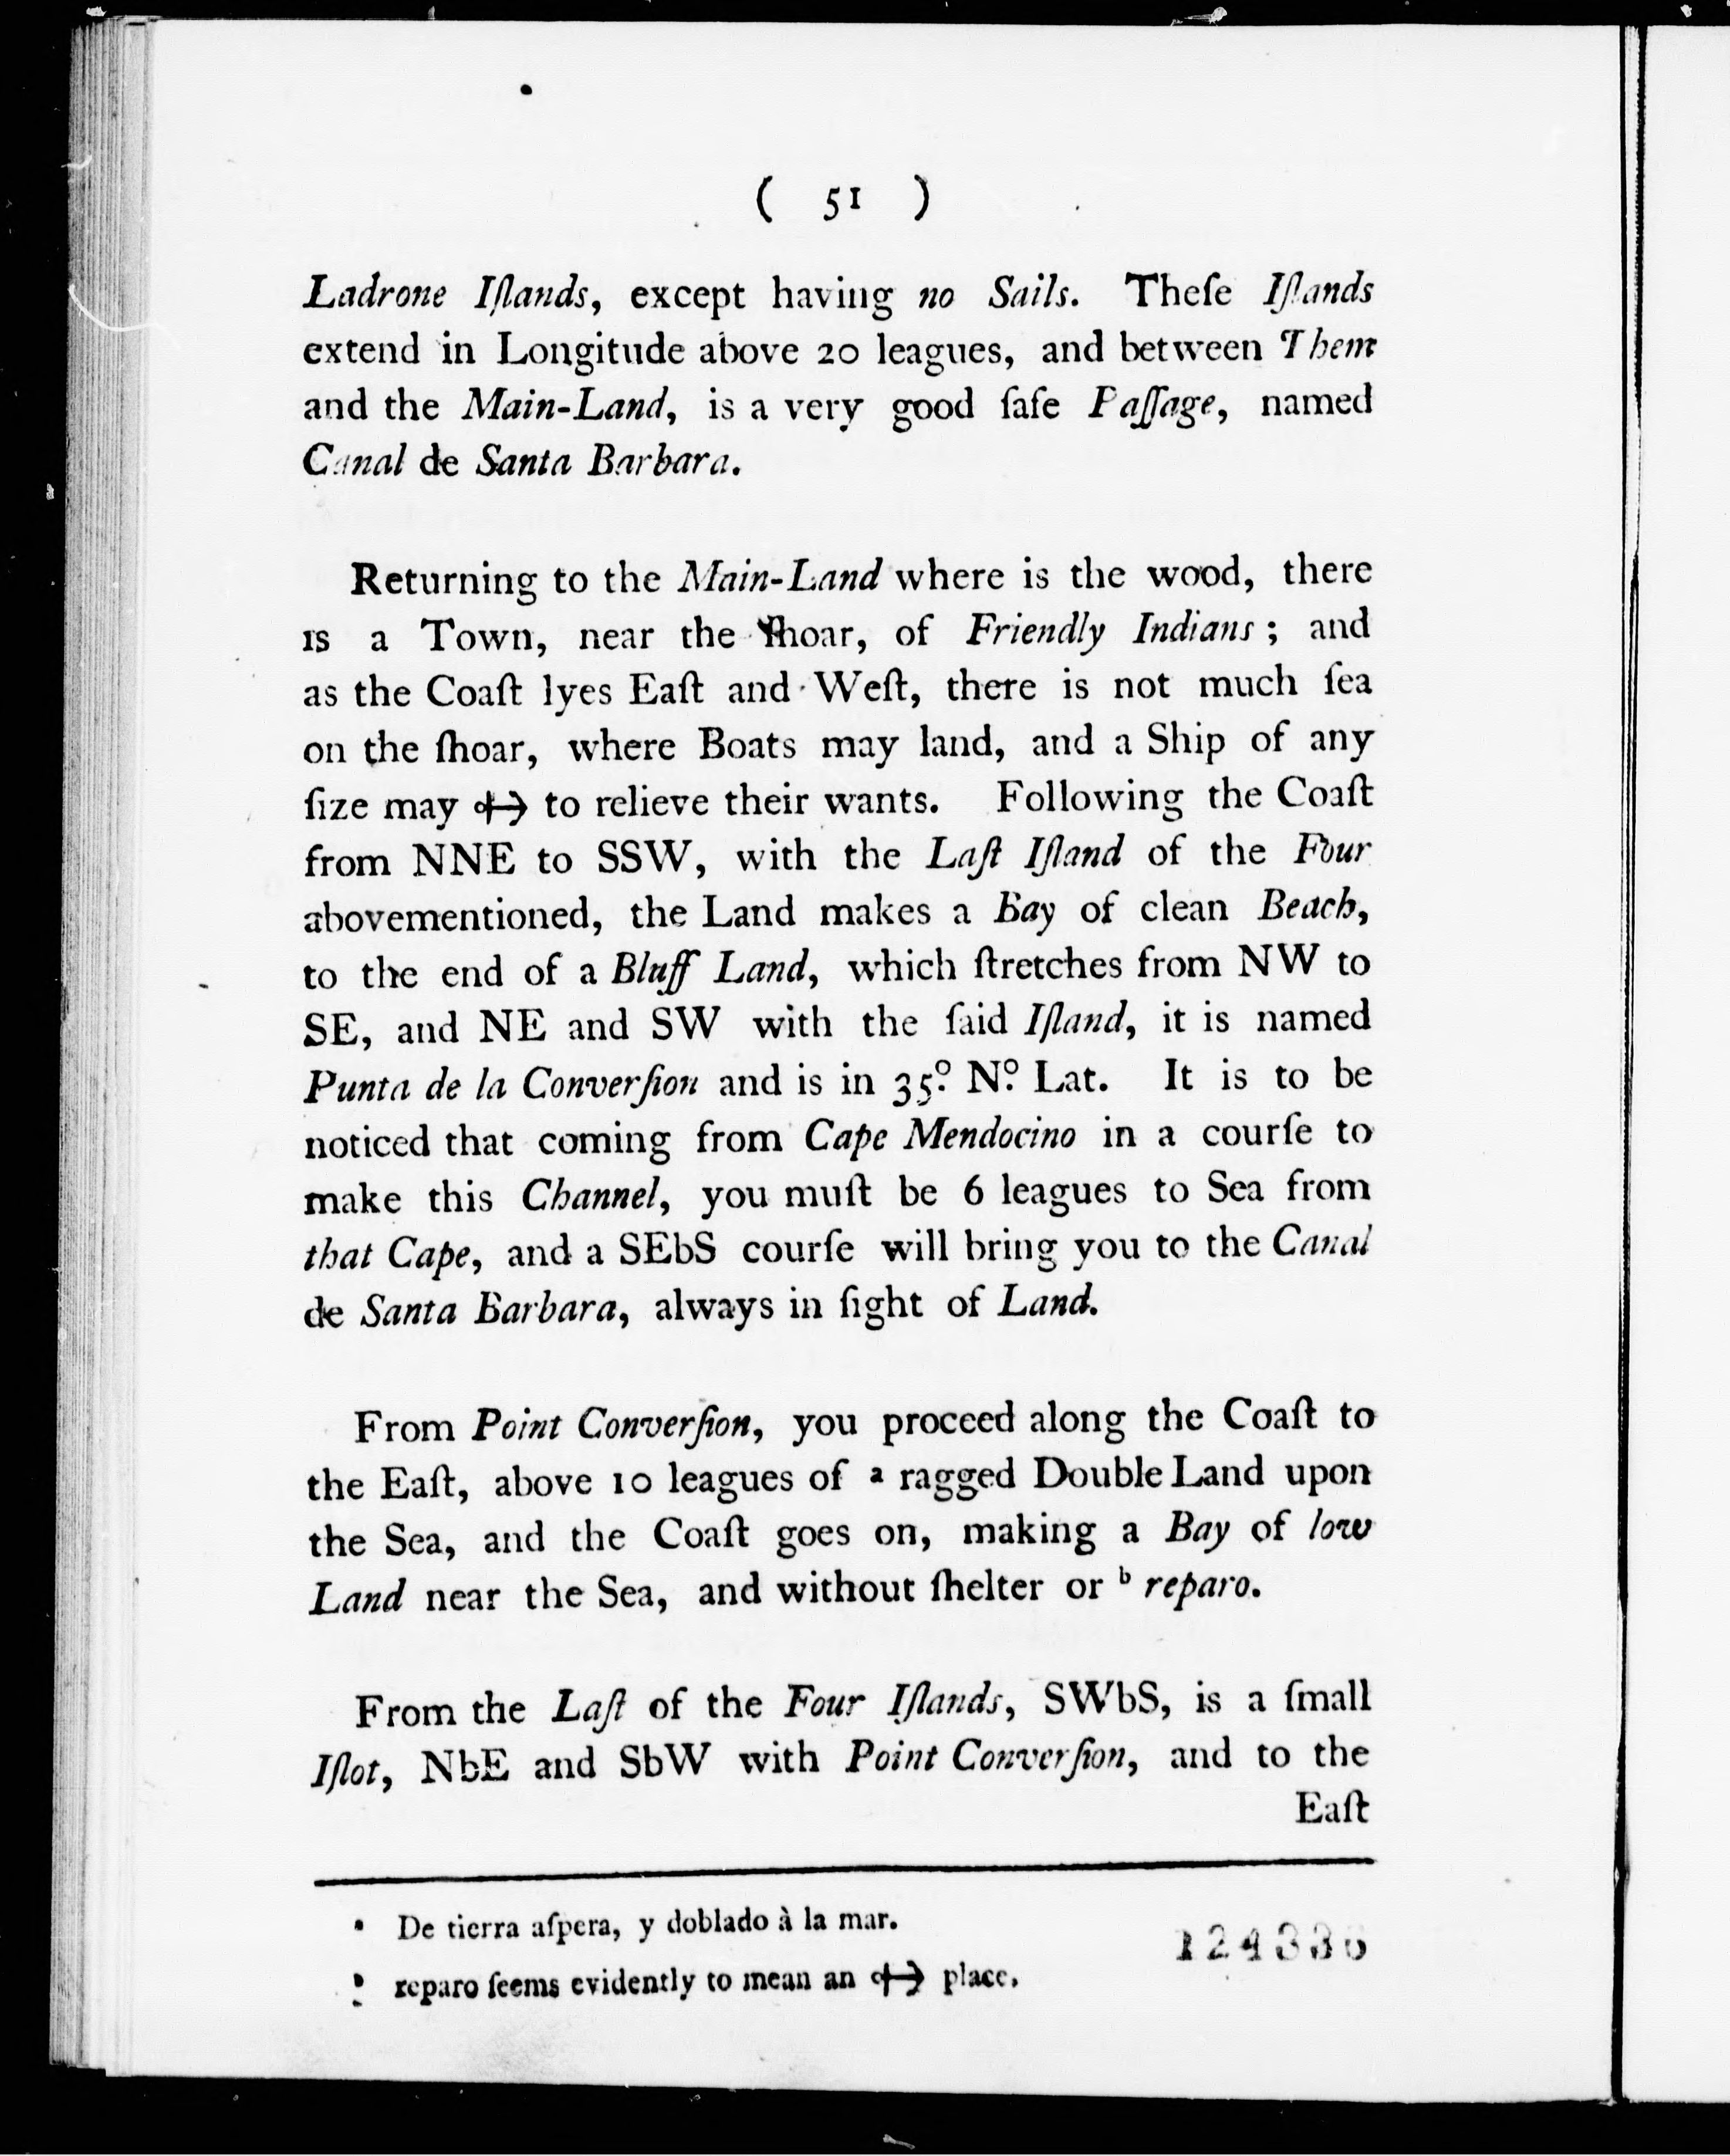 ( 51 )
Ladrone Iſlands, except having no Sails. Theſe Iſlands
extend in Longitude above 20 leagues, and between Them
and the Main-Land, is a very good ſafe Paſſage, named
Canal de Santa Barbara.
Returning to the Main-Land where is the wood, there
is a Town, near the ſhoar, of Friendly Indians; and
as the Coaſt lyes Eaſt and Weſt, there is not much ſea
on the ſhoar, where Boats may land, and a Ship of any
ſize may ⚓ to relieve their wants. Following the Coaſt
from NNE to SSW, with the Laſt Iſland of the Four
abovementioned, the Land makes a Bay of clean Beach,
to the end of a Bluff Land, which ſtretches from NW to
SE, and NE and SW with the ſaid Iſland, it is named
Punta de la Converſion and is in 35º Nº Lat. It is to be
noticed that coming from Cape Mendocino in a courſe to
make this Channel, you muſt be 6 leagues to Sea from
that Cape, and a SEbS courſe will bring you to the Canal
de Santa Barbara, always in ſight of Land.
From Point Converſion, you proceed along the Coaſt to
the Eaſt, above 10 leagues of ᵃ ragged Double Land upon
the Sea, and the Coaſt goes on, making a Bay of low
Land near the Sea, and without ſhelter or ᵇ reparo.
From the Laſt of the Four Iſlands, SWbS, is a ſmall
Iſlot, NbE and SbW with Point Converſion, and to the
Eaſt
ᵃ De tierra aſpera, y doblado à la mar.
ᵇ reparo ſeems evidently to mean an ⚓ place.